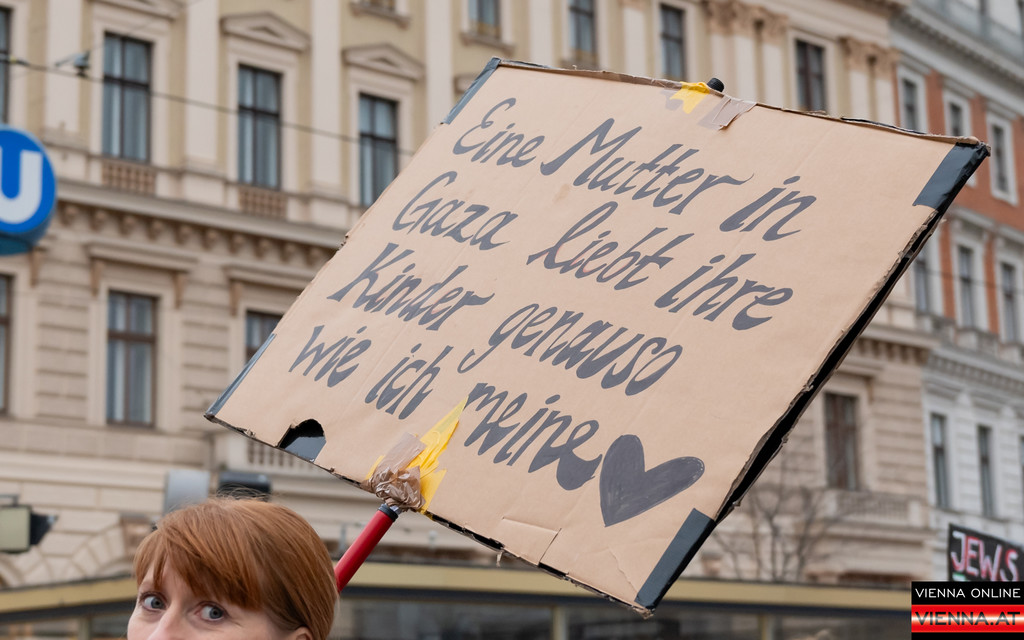 U
Eine Mutter in
Gaza liebt ihre
Kinder genauso
wie ich meine
JEWS
VIENNA ONLINE
VIENNA.AT